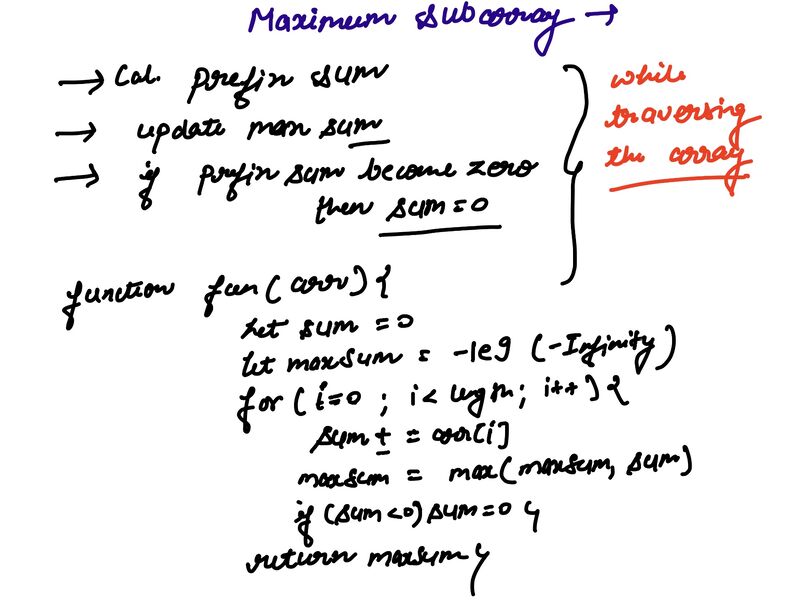 Maximum subarray →
→ Cal. prefix sum
→ update max sum
→ if prefix sum become zero
then sum = 0
while
traversing
the array
function fun(arr){
let sum = 0
let maxsum = -1e9 (-Infinity)
for(i=0 ; i< length; i++){
sum += arr[i]
maxsum = max(maxsum, sum)
if (sum<0) sum=0 }
return maxsum }